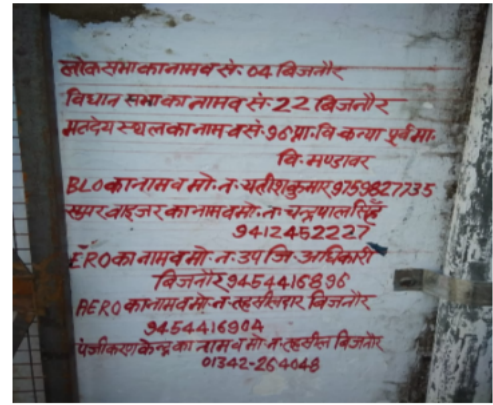 लोक सभा का नाम व सं॰ 04 बिजनौर
विधान सभा का नाम व सं॰ 22 बिजनौर
मतदेय स्थल का नाम व सं॰ 96 प्रा॰ वि कन्या पूर्व मा॰
वि॰ मण्डावर
BLO का नाम व मो॰ न॰ यतीश कुमार 9759827735
सुपर वाइजर का नाम व मो॰ न॰ चन्द्रपाल सिंह
9412452227
ERO का नाम व मो॰ न॰ उप जि॰ अधिकारी
बिजनौर 9454416896
AERO का नाम व मो॰ न॰ तहसीलदार बिजनौर
9454416904
पंजीकरण केन्द्र का नाम व मो॰ न॰ तहसील बिजनौर
01342-264048